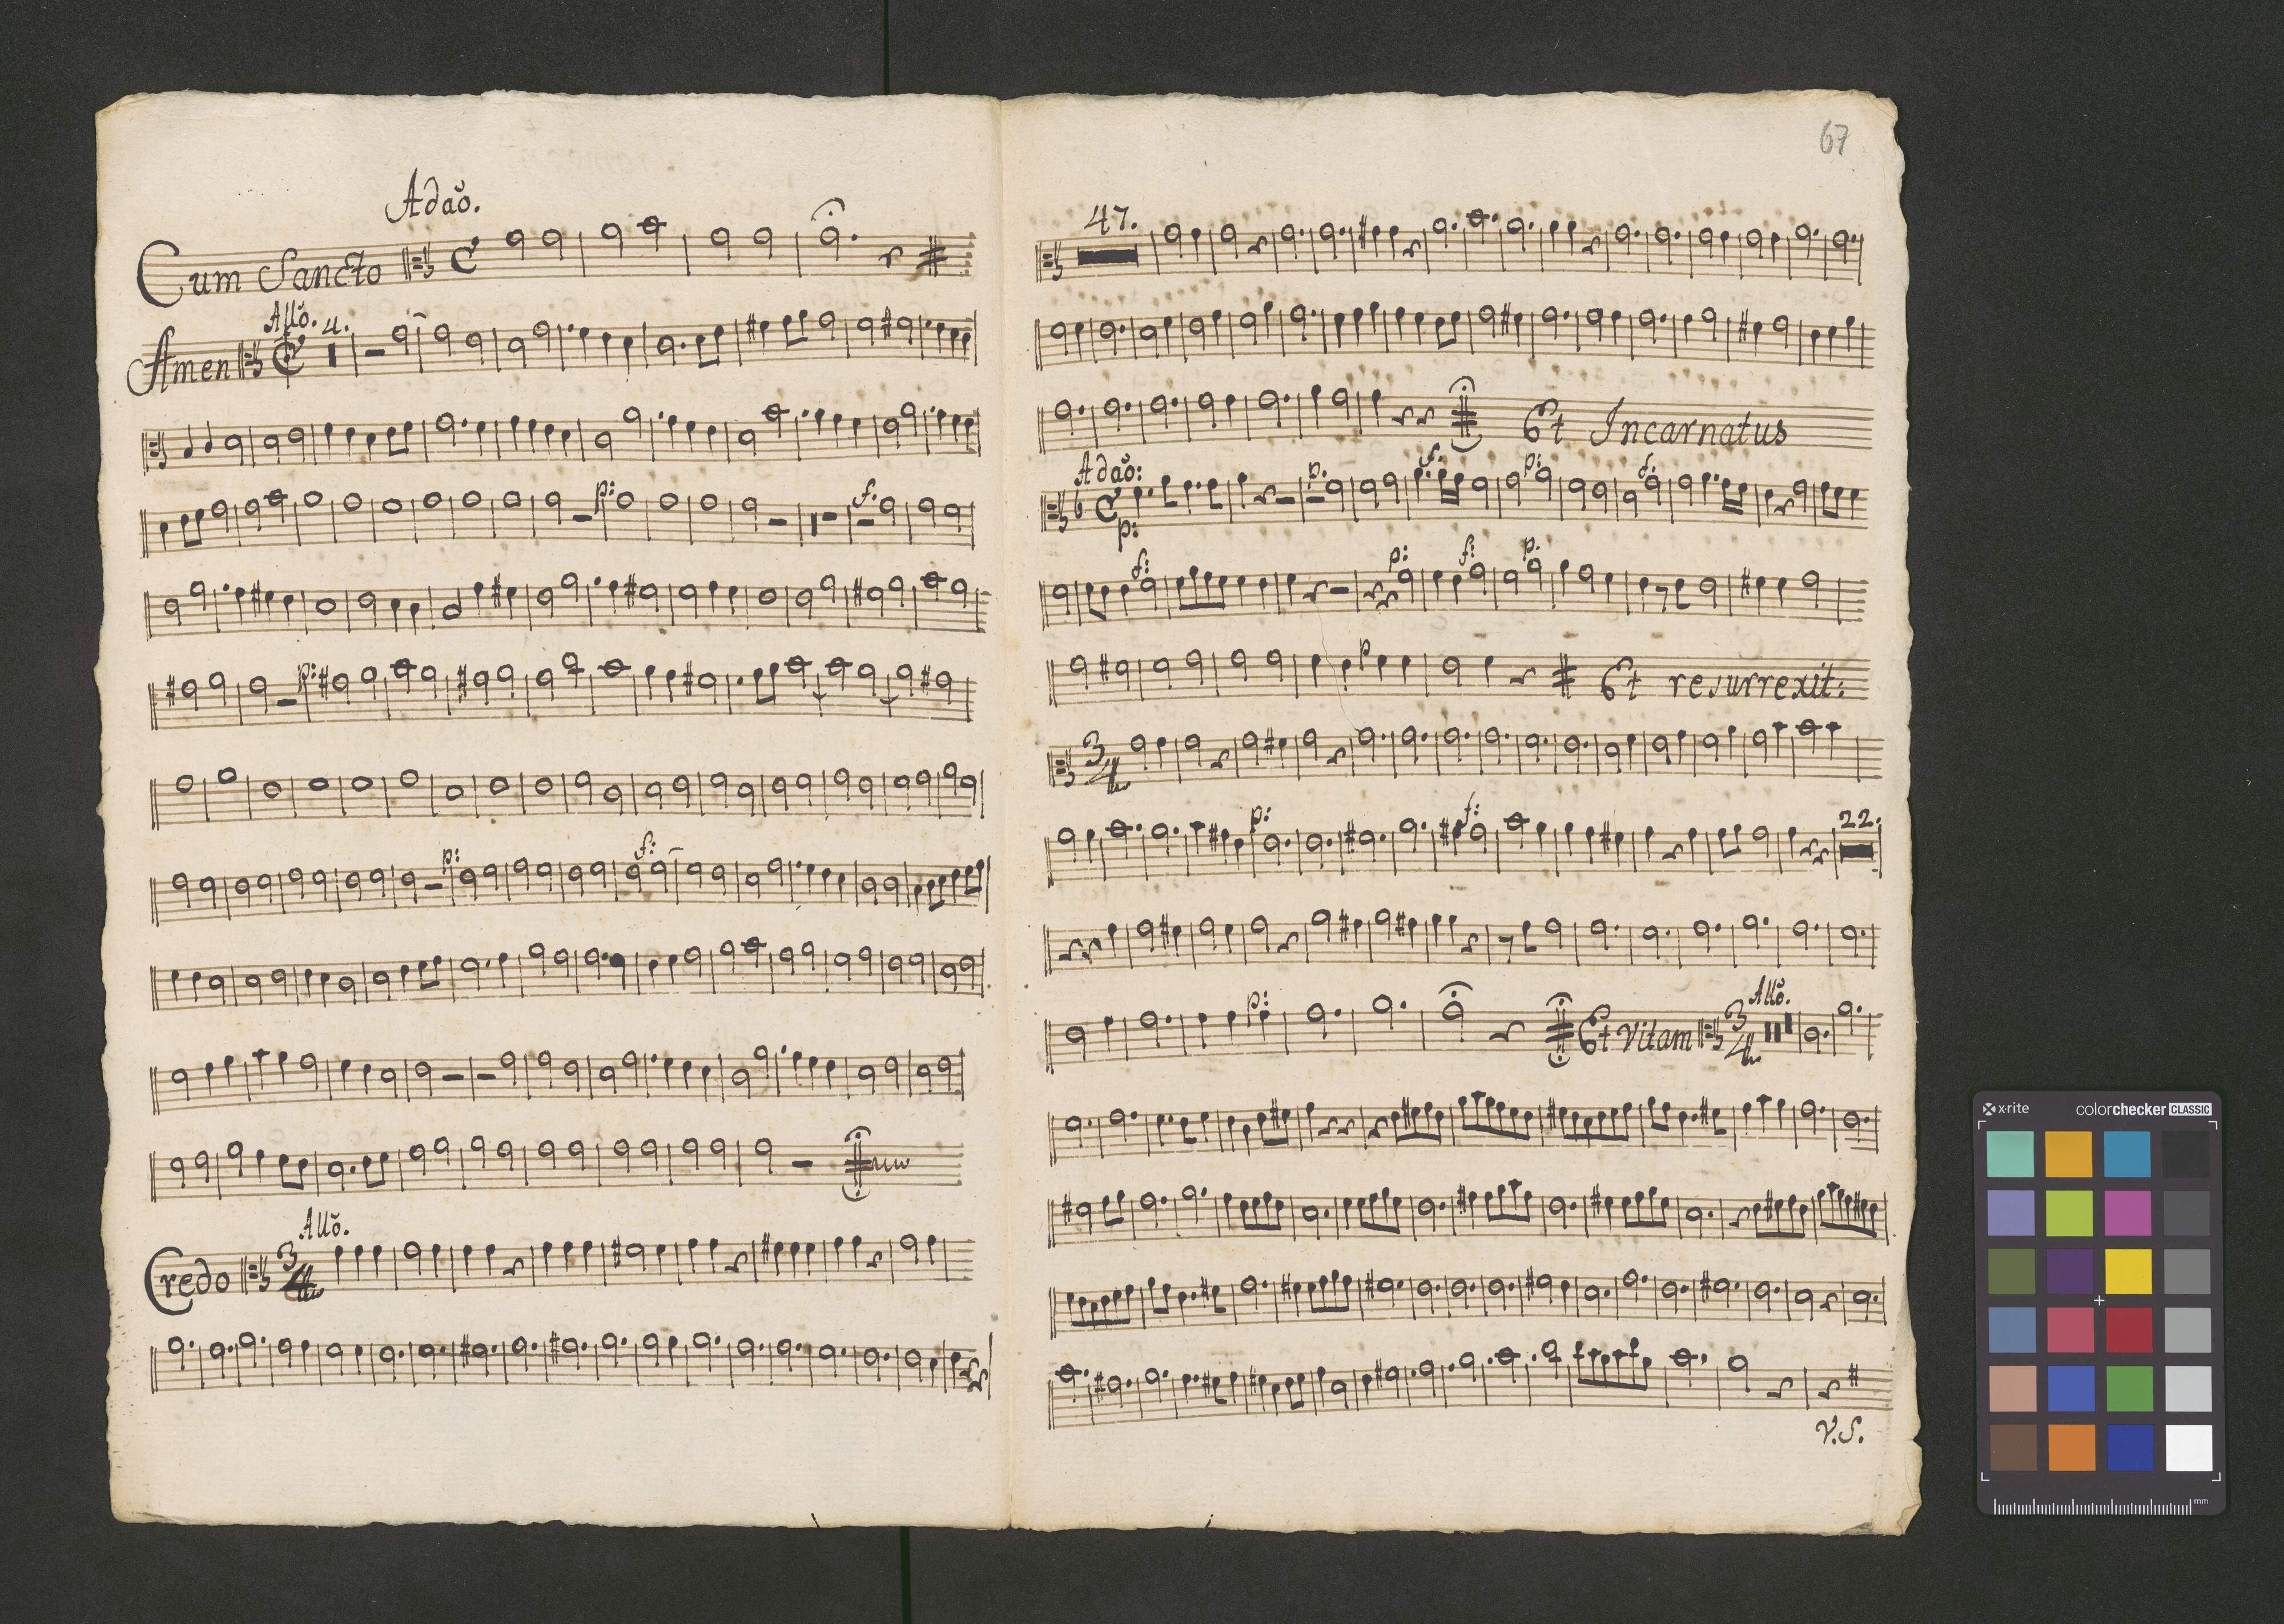 Adaõ.
Cum Sancto
Allõ. 4.
Amen
p: f.
p:
p: f:
Allõ.
Credo 3/4
67
47.
Et Incarnatus
Adaõ: p. f. p: f.
p:
f: p: f: p.
p
Et resurrexit:
3/4
p: f: 22.
p: Allõ.
Et Vitam 3/4
V.S.
x-rite colorchecker CLASSIC
mm